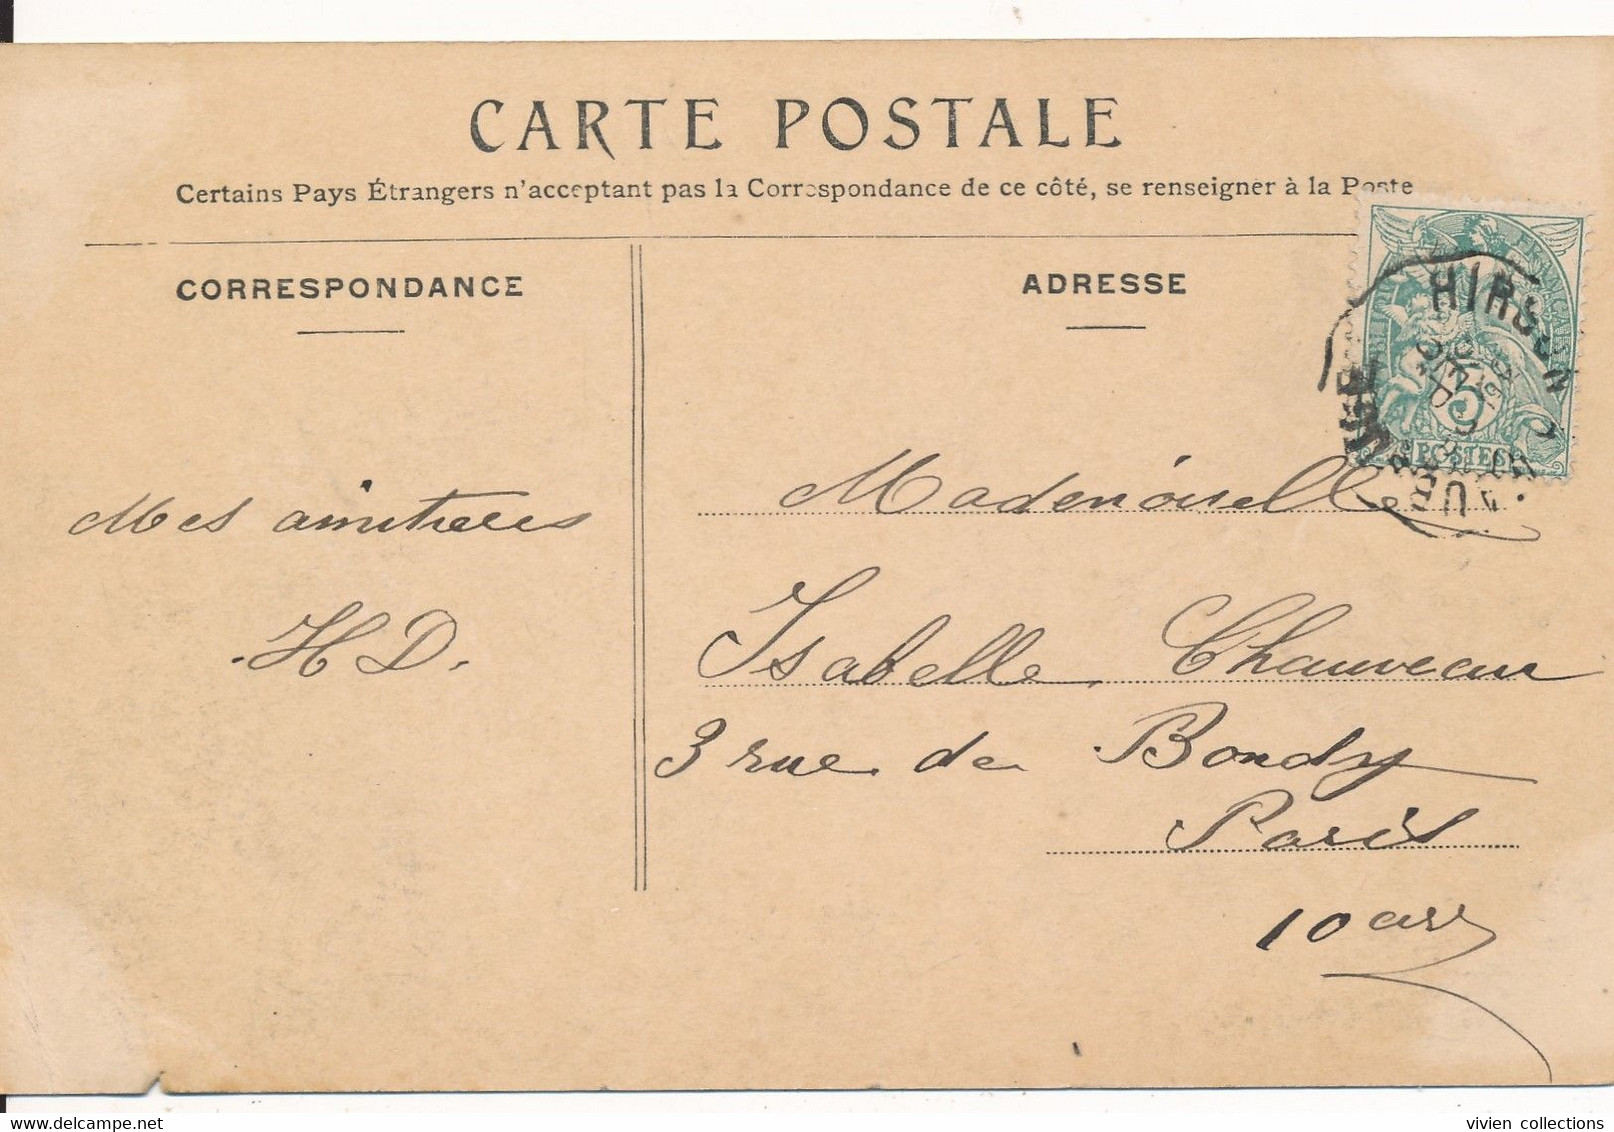 CARTE POSTALE
Certains Pays Étrangers n'acceptant pas la Correspondance de ce côté, se renseigner à la Poste
CORRESPONDANCE
Mes amitiées
H D.
ADRESSE
FRANÇAISE
HIRSON
5
POSTES
Mademoiselle
Isabelle Chauveau
3 rue de Bondy
Paris
10 arr
vivien collections